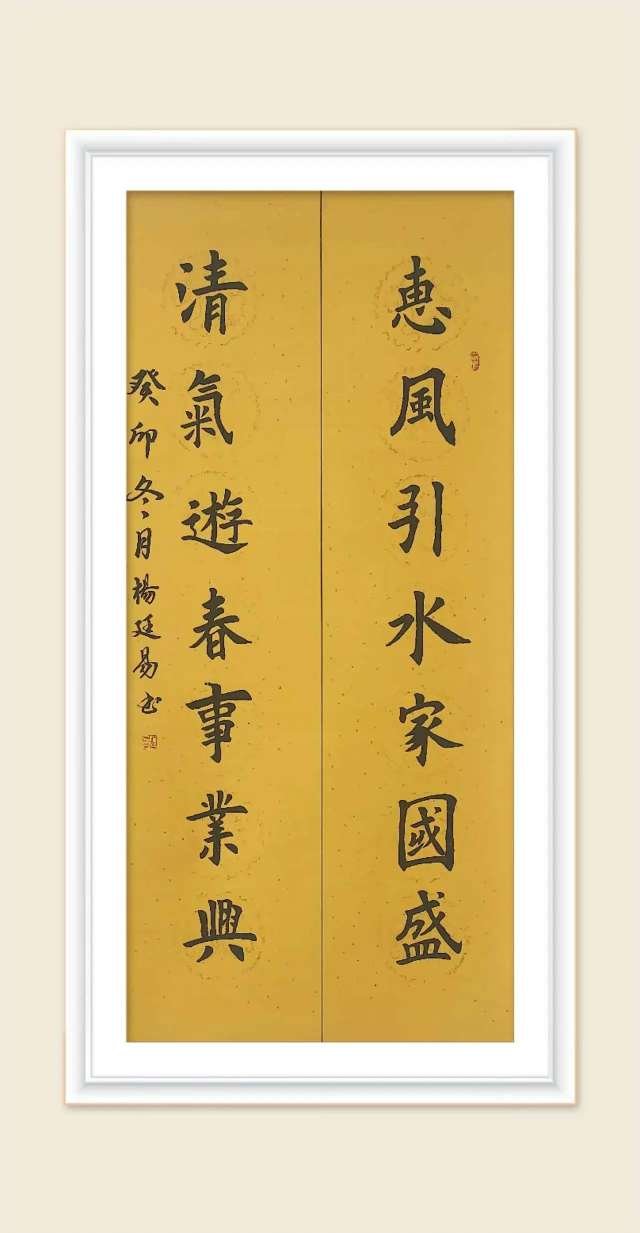 惠風引水家國盛
清氣遊春事業興
癸卯冬月楊廷易书